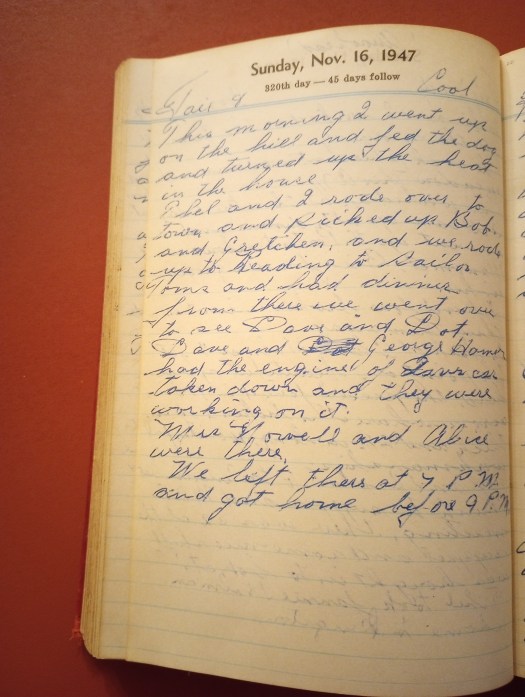 Sunday, Nov. 16, 1947
320th day — 45 days follow
Fair & Cool
This morning I went up
on the hill and fed the dog
and turned up the heat
in the house
Phel and I rode over to
town and picked up Bob
and Gretchen, and we rode
up to Reading to Sailor
Toms and had dinner
from there we went over
to see Dave and Dot.
Dave and George Homer
had the engine of Daves car
taken down and they were
working on it.
Mrs Howell and Alice
were there.
We left there at 7 P.M.
and got home before 9 P.M.